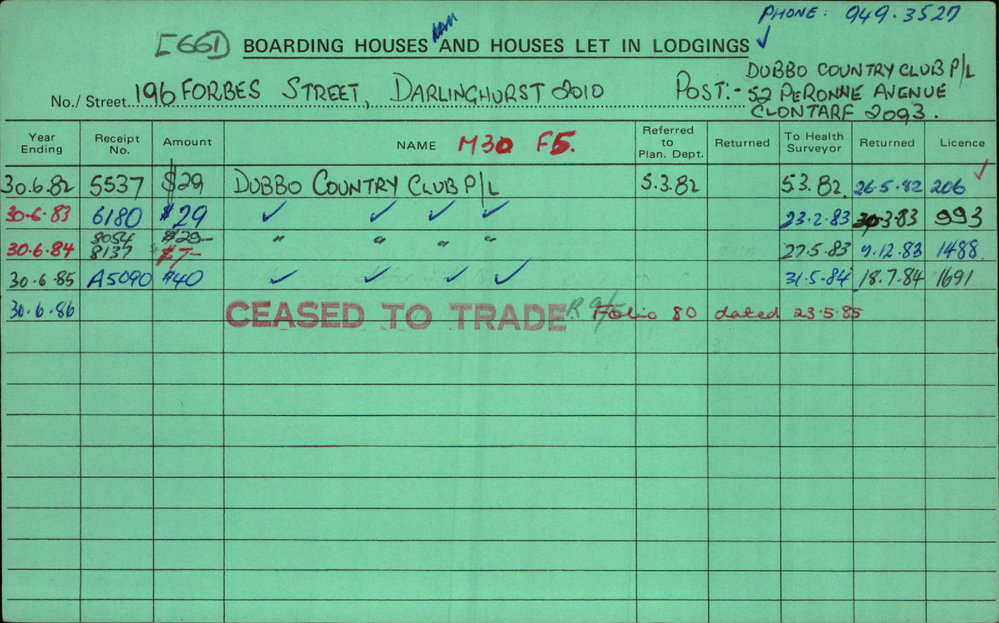 PHONE: 949.3527
[661] BOARDING HOUSES AND HOUSES LET IN LODGINGS ✓
No./ Street 196 FORBES STREET, DARLINGHURST 2010 POST:- DUBBO COUNTRY CLUB P/L
52 PERONNE AVENUE
CLONTARF 2093.
Year Ending Receipt No. Amount NAME M30 F5. Referred to Plan. Dept. Returned To Health Surveyor Returned Licence
30.6.82 5537 $29 DUBBO COUNTRY CLUB P/L 5.3.82 5.3.82. 26.5.82 206 ✓
30-6-83 6180 $29 ✓ ✓ ✓ ✓ 23.2.83 3.83 993
8054 $29-
30.6.84 8137 $7- " " " " 27.5.83 9.12.83 1488
30.6.85 A5090 $40 ✓ ✓ ✓ ✓ 31.5.84 18.7.84 1691
30.6.86 CEASED TO TRADE Folio 80 dated 23.5.85